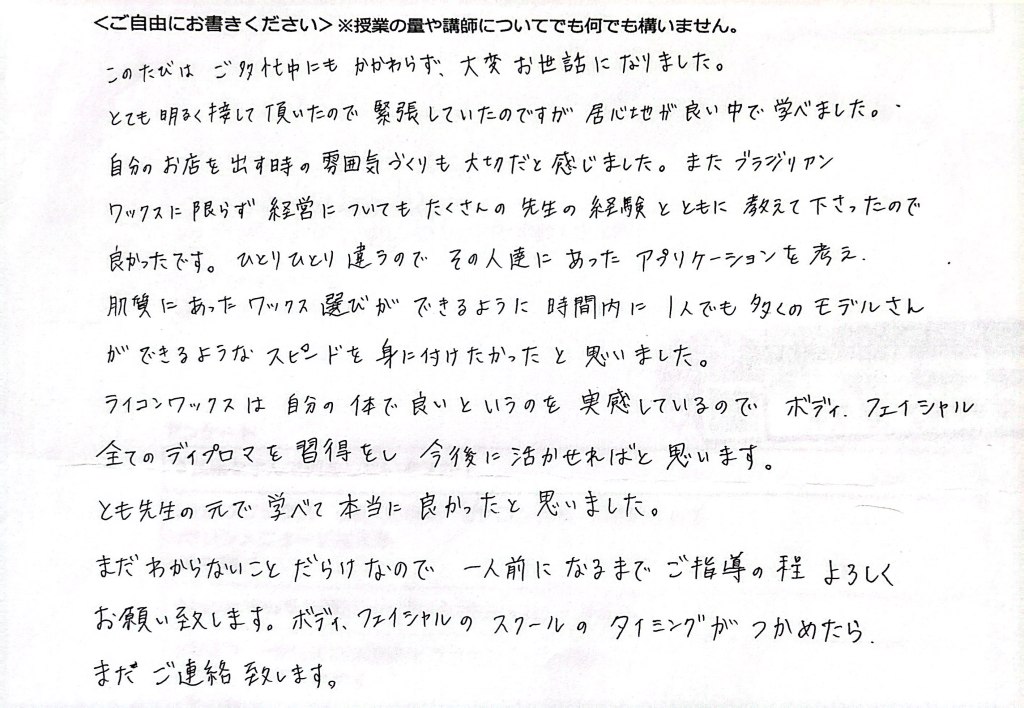 <ご自由にお書きください>※授業の量や講師についてでも何でも構いません。
このたびは ご多忙中にも かかわらず、大変 お世話に なりました。
とても 明るく 接して 頂いたので 緊張していたのですが 居心地が 良い中で 学べました。
自分の お店を 出す時の 雰囲気づくりも 大切だと 感じました。また ブラジリアン
ワックスに 限らず 経営についても たくさんの 先生の 経験と ともに 教えて 下さったので
良かったです。ひとりひとり 違うので その人達に あった アプリケーションを 考え、
肌質に あった ワックス 選びが できるように 時間内に 1人でも 多くの モデルさん
が できるような スピードを 身に付けたかったと 思いました。
ライコンワックスは 自分の 体で 良いというのを 実感しているので ボディ、フェイシャル
全ての ディプロマを 習得をし 今後に 活かせればと 思います。
とも先生の 元で 学べて 本当に 良かったと 思いました。
まだ わからないこと だらけなので 一人前に なるまで ご指導の 程 よろしく
お願い致します。ボディ、フェイシャルの スクールの タイミングが つかめたら、
まだ ご連絡 致します。